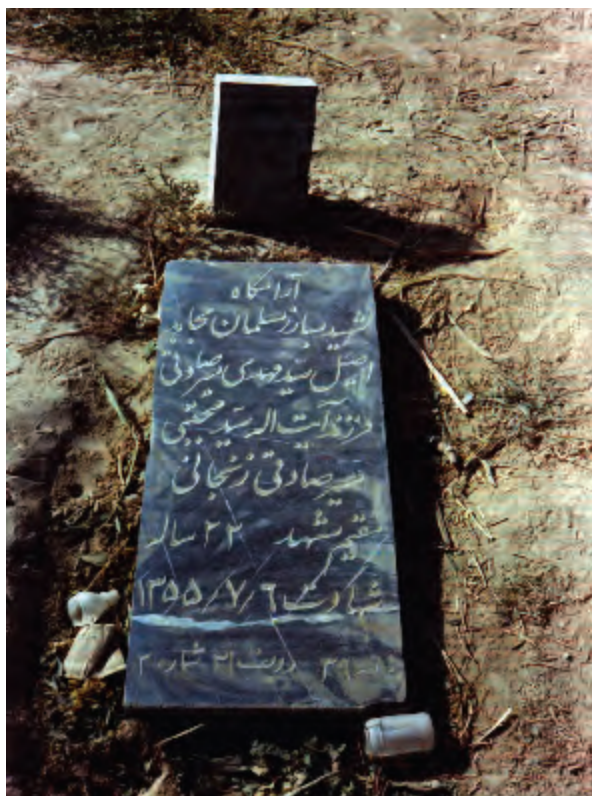 آرامگاه
شهید مبارز مسلمان مجاهد
اصیل سید مهدی میرصادقی
فرزند آیت اله سید مجتبی
میرصادقی زنجانی
مقیم مشهد ۲۲ ساله
شهادت ۱۳۵۵/۷/۶
۳۹ ردیف ۳۱ شماره ۲۰